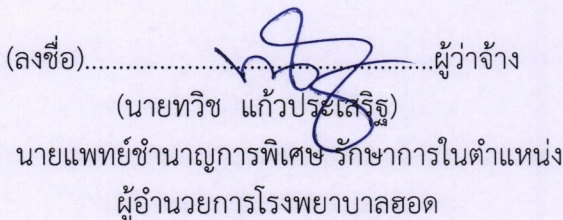 (ลงชื่อ)......................................................ผู้ว่าจ้าง
(นายทวิช แก้วประเสริฐ)
นายแพทย์ชำนาญการพิเศษ รักษาการในตำแหน่ง
ผู้อำนวยการโรงพยาบาลฮอด